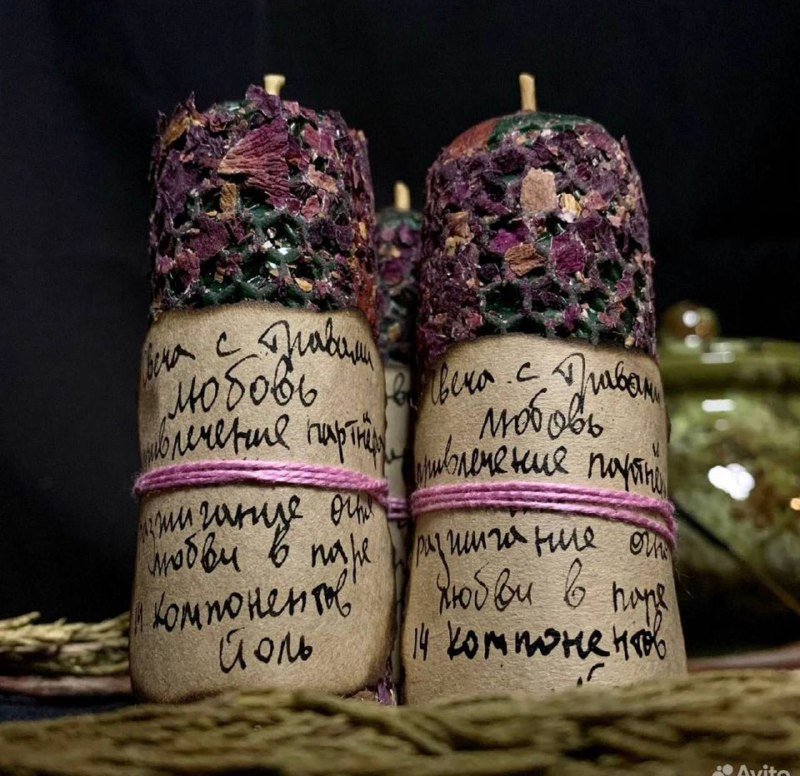 Свеча с Травами
Любовь
привлечение партнёр
разжигание огня
любви в паре
14 компонентов
Йоль
Свеча с Травами
Любовь
привлечение партнёр
разжигание огн
любви в паре
14 компонентов
Avito